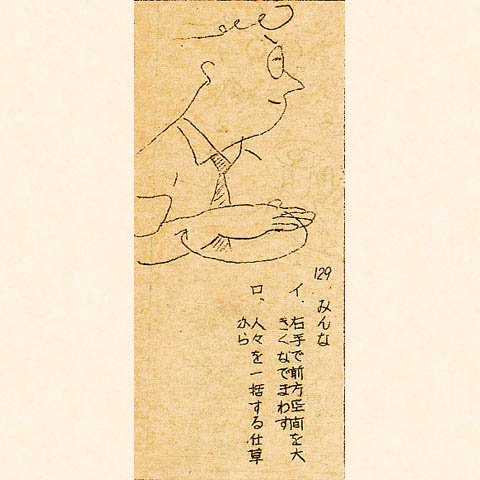 129. みんな
イ. 右手で前方空間を大
きくなでまわす
ロ、人々を一括する仕草
から